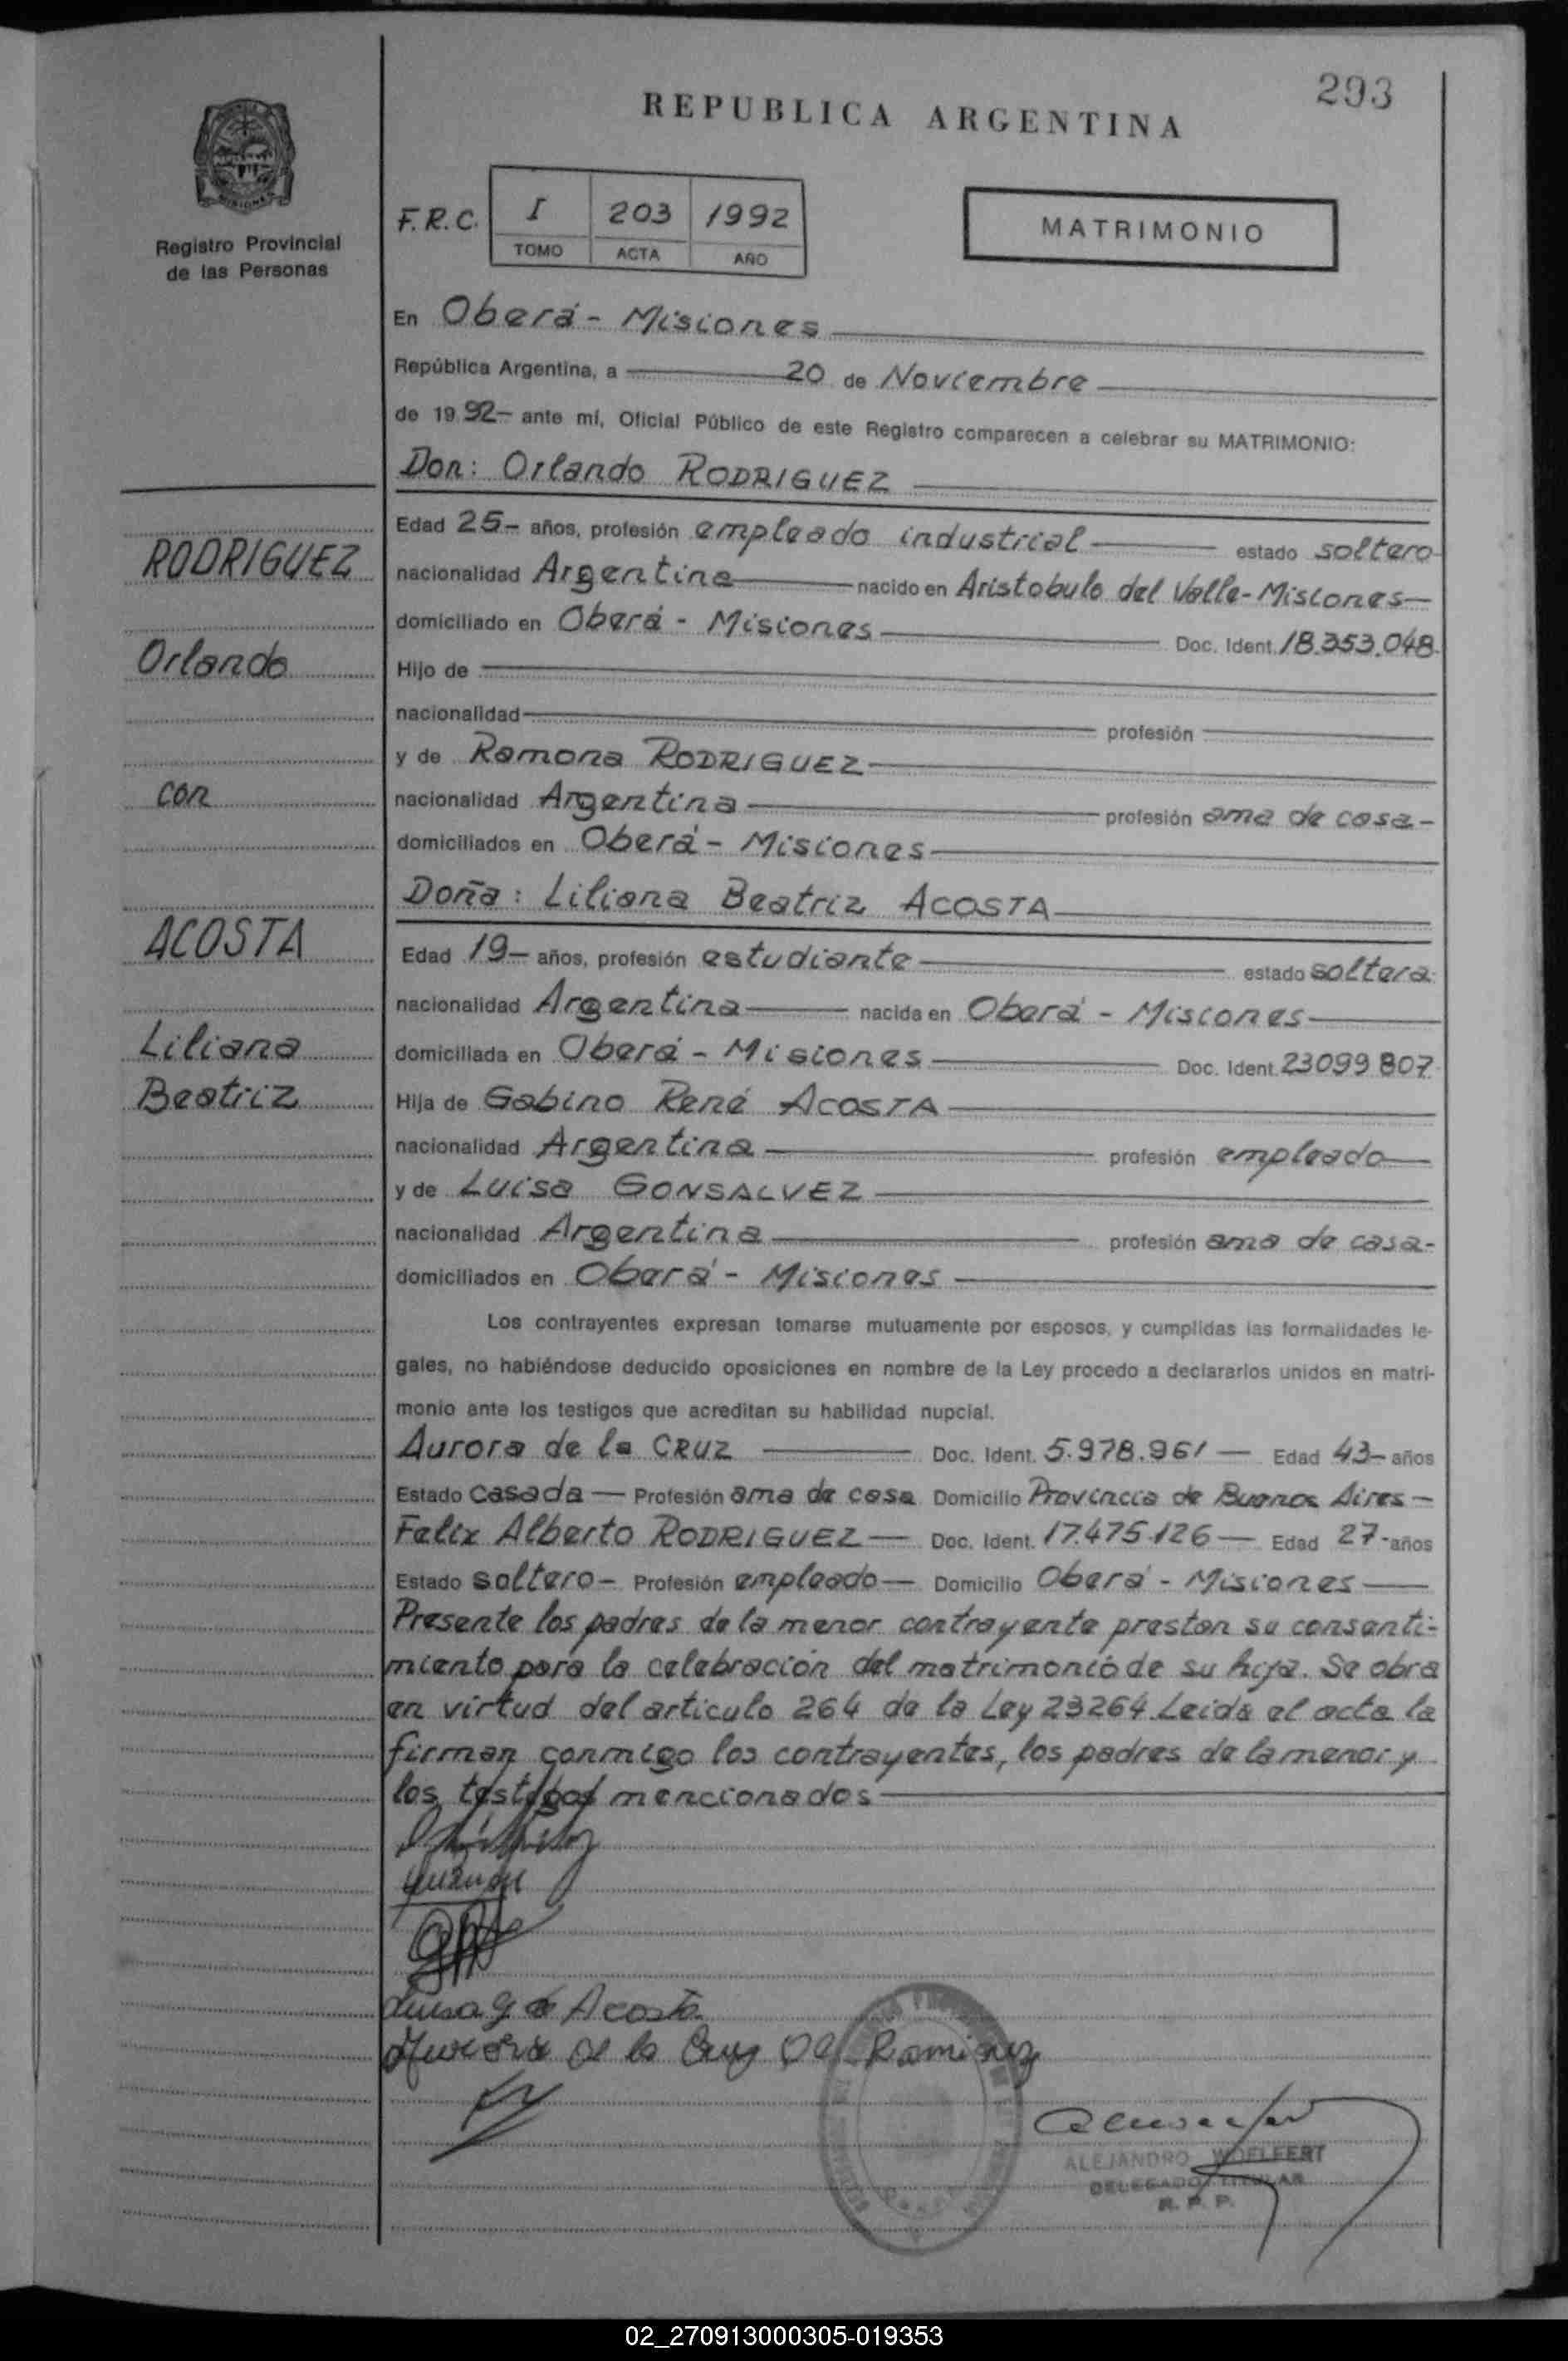 293
REPUBLICA ARGENTINA
Registro Provincial
de las Personas
F.R.C.
I 203 1992
TOMO ACTA AÑO
MATRIMONIO
En Oberá - Misiones
República Argentina, a 20 de Noviembre
de 19 92- ante mí, Oficial Público de este Registro comparecen a celebrar su MATRIMONIO:
Don: Orlando RODRIGUEZ
Edad 25- años, profesión empleado industrial estado soltero
RODRIGUEZ
nacionalidad Argentina nacido en Aristobulo del Valle-Misiones
domiciliado en Oberá - Misiones Doc. Ident. 18.353.048
Orlando
Hijo de
nacionalidad profesión
y de Ramona RODRIGUEZ
con
nacionalidad Argentina profesión ama de casa-
domiciliados en Oberá - Misiones
Doña: Liliana Beatriz ACOSTA
ACOSTA
Edad 19- años, profesión estudiante estado soltera
nacionalidad Argentina nacida en Oberá - Misiones
Liliana
domiciliada en Oberá - Misiones Doc. Ident. 23099807
Beatriz
Hija de Gabino René ACOSTA
nacionalidad Argentina profesión empleado
y de Luisa GONSALVEZ
nacionalidad Argentina profesión ama de casa-
domiciliados en Oberá - Misiones
Los contrayentes expresan tomarse mutuamente por esposos, y cumplidas las formalidades le-
gales, no habiéndose deducido oposiciones en nombre de la Ley procedo a declararlos unidos en matri-
monio ante los testigos que acreditan su habilidad nupcial.
Aurora de la CRUZ Doc. Ident. 5.978.961 Edad 43- años
Estado Casada Profesión ama de casa Domicilio Provincia de Buenos Aires-
Felix Alberto RODRIGUEZ Doc. Ident. 17.475.126 Edad 27- años
Estado soltero- Profesión empleado Domicilio Oberá - Misiones
Presente los padres de la menor contrayente prestan su consenti-
miento para la celebración del matrimonio de su hija. Se obra
en virtud del articulo 264 de la Ley 23264. Leida el acta la
firman conmigo los contrayentes, los padres de la menor y
los testigos mencionados
Luisa G de Acosta
Aurora de la Cruz De Ramirez
ALEJANDRO WOELFERT
DELEGADO TITULAR
R. P. P.
02_270913000305-019353